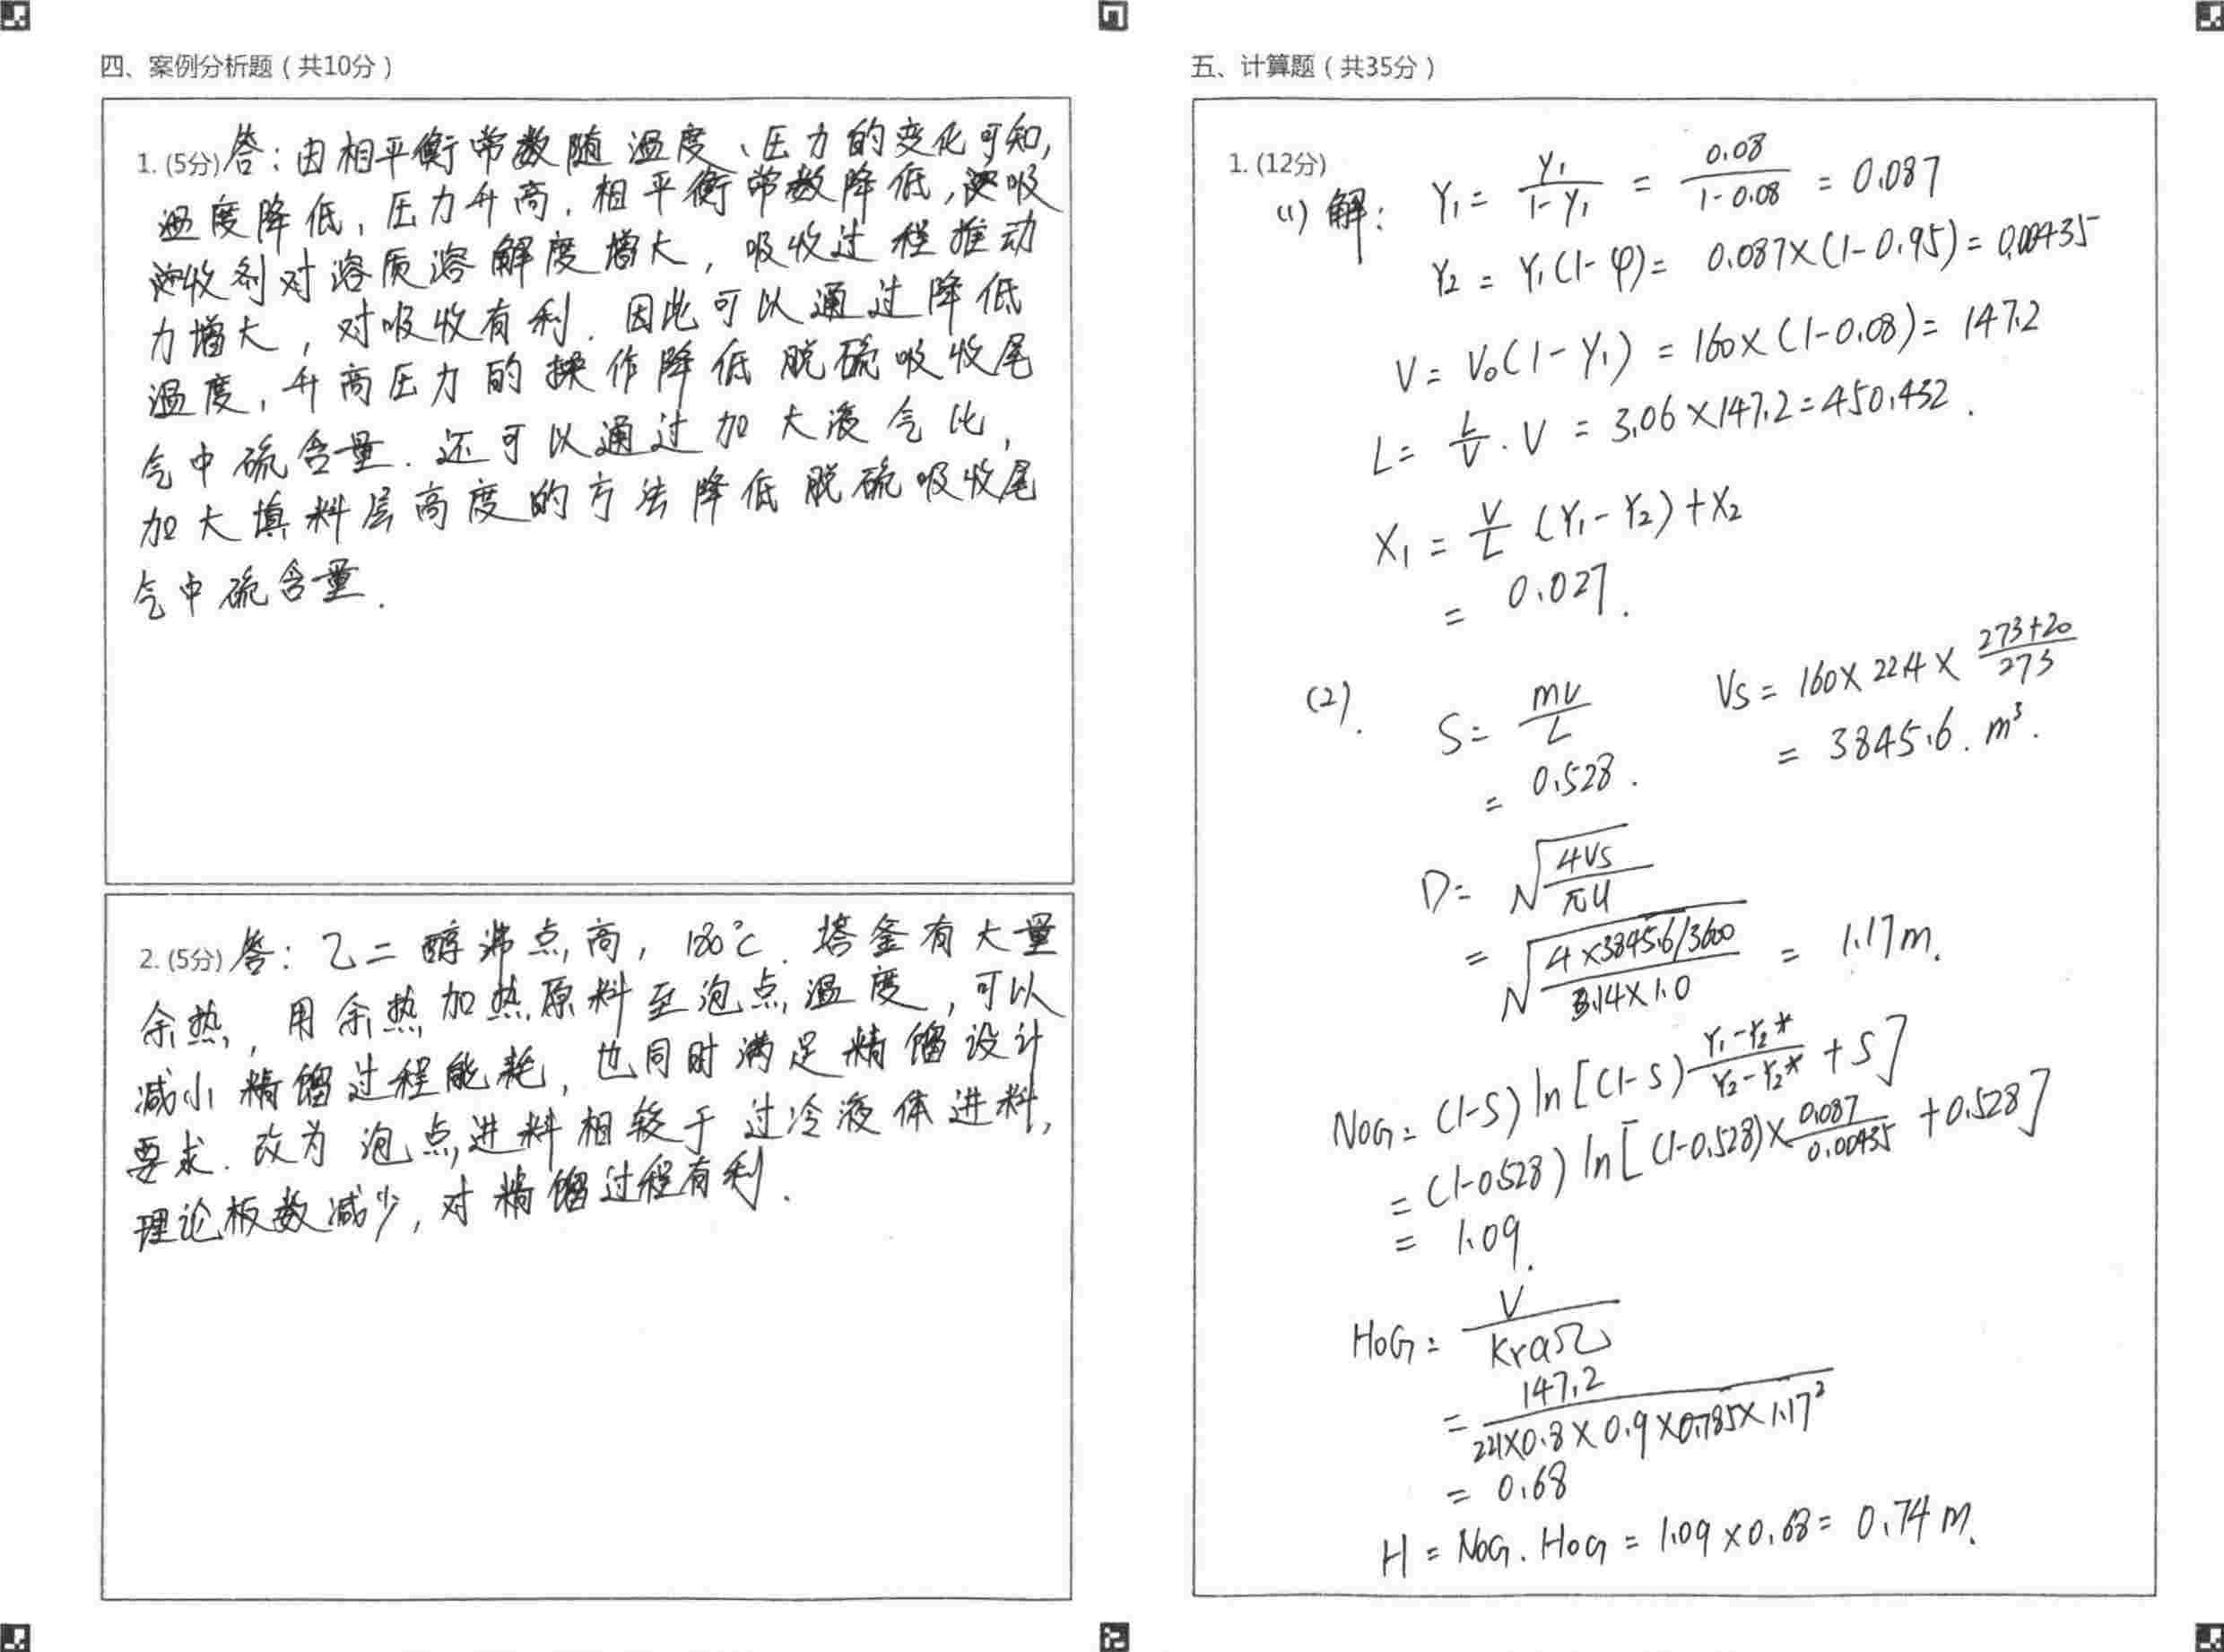 四、案例分析题（共10分）
1. (5分) 答：由相平衡常数随温度、压力的变化可知,
温度降低, 压力升高, 相平衡常数降低, 吸
收剂对溶质溶解度增大, 吸收过程推动
力增大, 对吸收有利. 因此可以通过降低
温度, 升高压力的操作降低脱硫吸收尾
气中硫含量. 还可以通过加大液气比,
加大填料层高度的方法降低脱硫吸收尾
气中硫含量.
2. (5分) 答：乙二醇沸点高, 180℃. 塔釜有大量
余热, 用余热加热原料至泡点温度, 可以
减小精馏过程能耗, 也同时满足精馏设计
要求. 改为泡点进料相较于过冷液体进料,
理论板数减少, 对精馏过程有利.
五、计算题（共35分）
1. (12分)
(1) 解： Y₁ = y₁/(1-y₁) = 0.08/(1-0.08) = 0.087
Y₂ = Y₁(1-φ) = 0.087×(1-0.95) = 0.00435
V = V₀(1-y₁) = 160×(1-0.08) = 147.2
L = L/V · V = 3.06×147.2 = 450.432.
X₁ = V/L (Y₁-Y₂)+X₂
= 0.027.
(2). S = mV/L
= 0.528.
Vs = 160×22.4×(273+20)/273
= 3845.6. m³.
D = √(4Vs/πu)
= √(4×3845.6/3600/3.14×1.0) = 1.17m.
NOG = (1-S) ln[(1-S) (Y₁-Y₂*)/(Y₂-Y₂*) + S]
= (1-0.528) ln[(1-0.528)×0.087/0.00435 + 0.528]
= 1.09.
HOG = V/KYaΩ
= 147.2/221×0.8×0.9×0.785×1.17²
= 0.68
H = NOG. HOG = 1.09×0.68 = 0.74m.